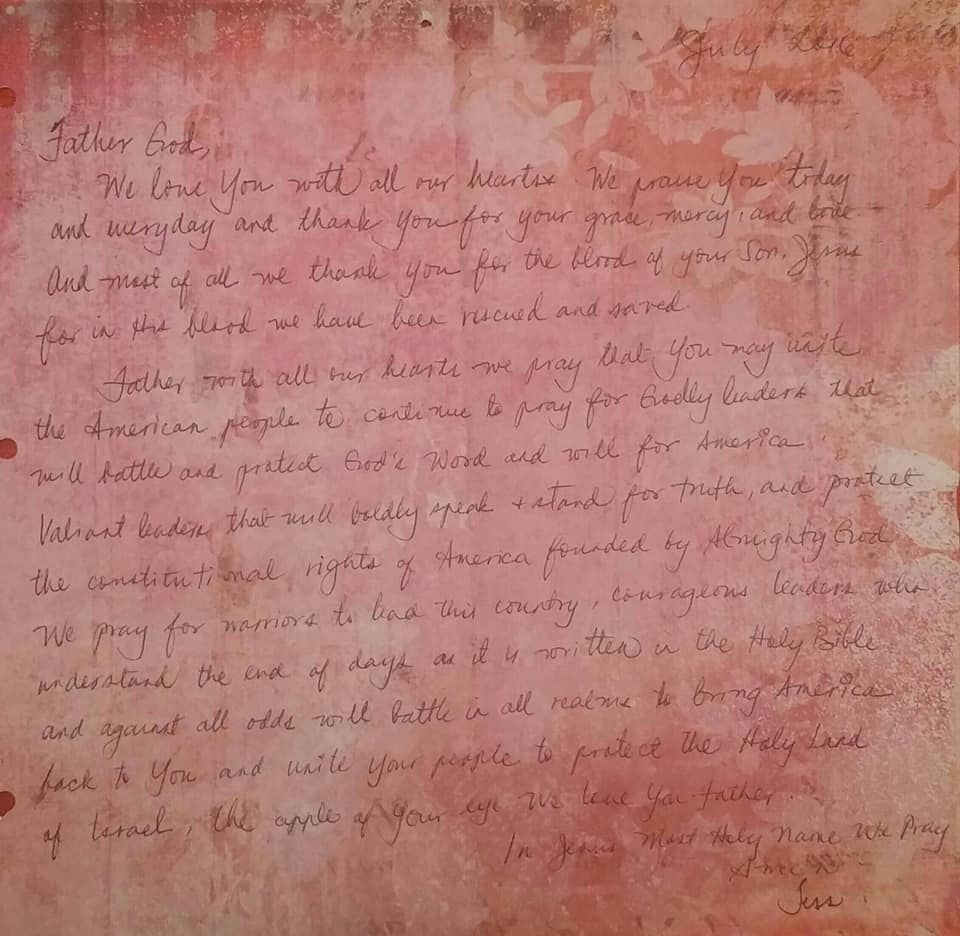 July 2016
Father God,
We love You with all our hearts. We praise You today
and everyday and thank You for your grace, mercy, and love
And most of all we thank You for the blood of your Son, Jesus
for in His blood we have been rescued and saved.
Father with all our hearts we pray that You may unite
the American people to continue to pray for Godly leaders that
will battle and protect God's Word and will for America.
Valiant leaders that will boldly speak + stand for truth, and protect
the constitutional rights of America founded by Almighty God
We pray for warriors to lead this country, courageous leaders who
understand the end of days as it is written in the Holy Bible
and against all odds will battle in all realms to bring America
back to You and unite your people to protect the Holy Land
of Israel, the apple of Your eye We love You Father.
In Jesus Most Holy Name We Pray
Amen
Jess